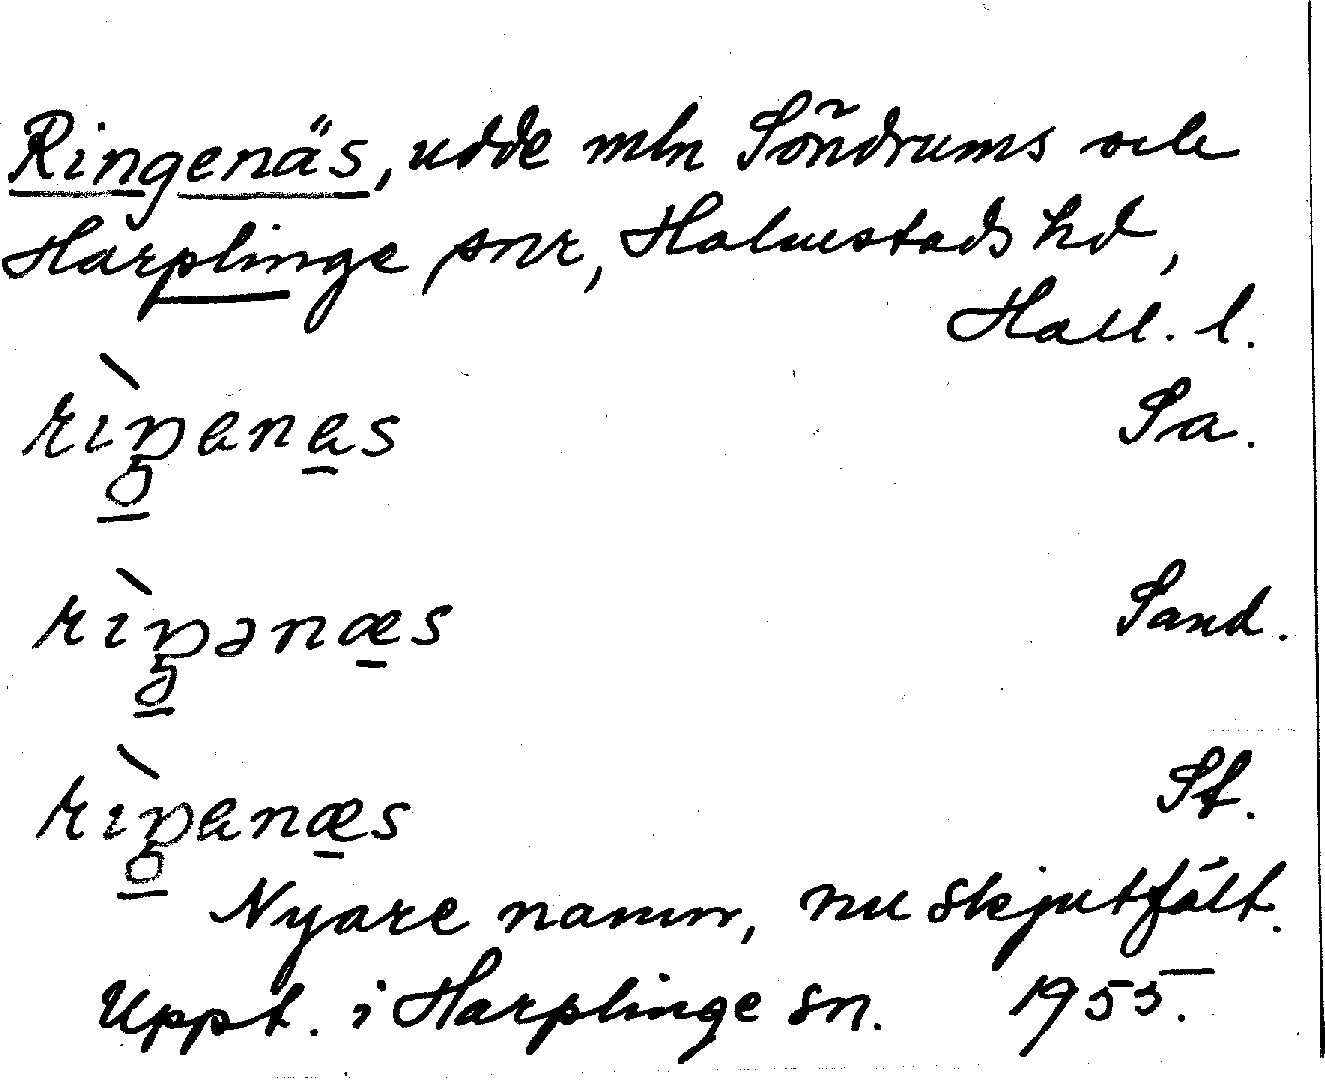 Ringenäs, udde mln Söndrums och
Harplinge snr, Halmstads hd,
Hall. l.
Sa.
Sand.
St.
Nyare namn, nu skjutfält.
Uppt. i Harplinge sn. 1955.